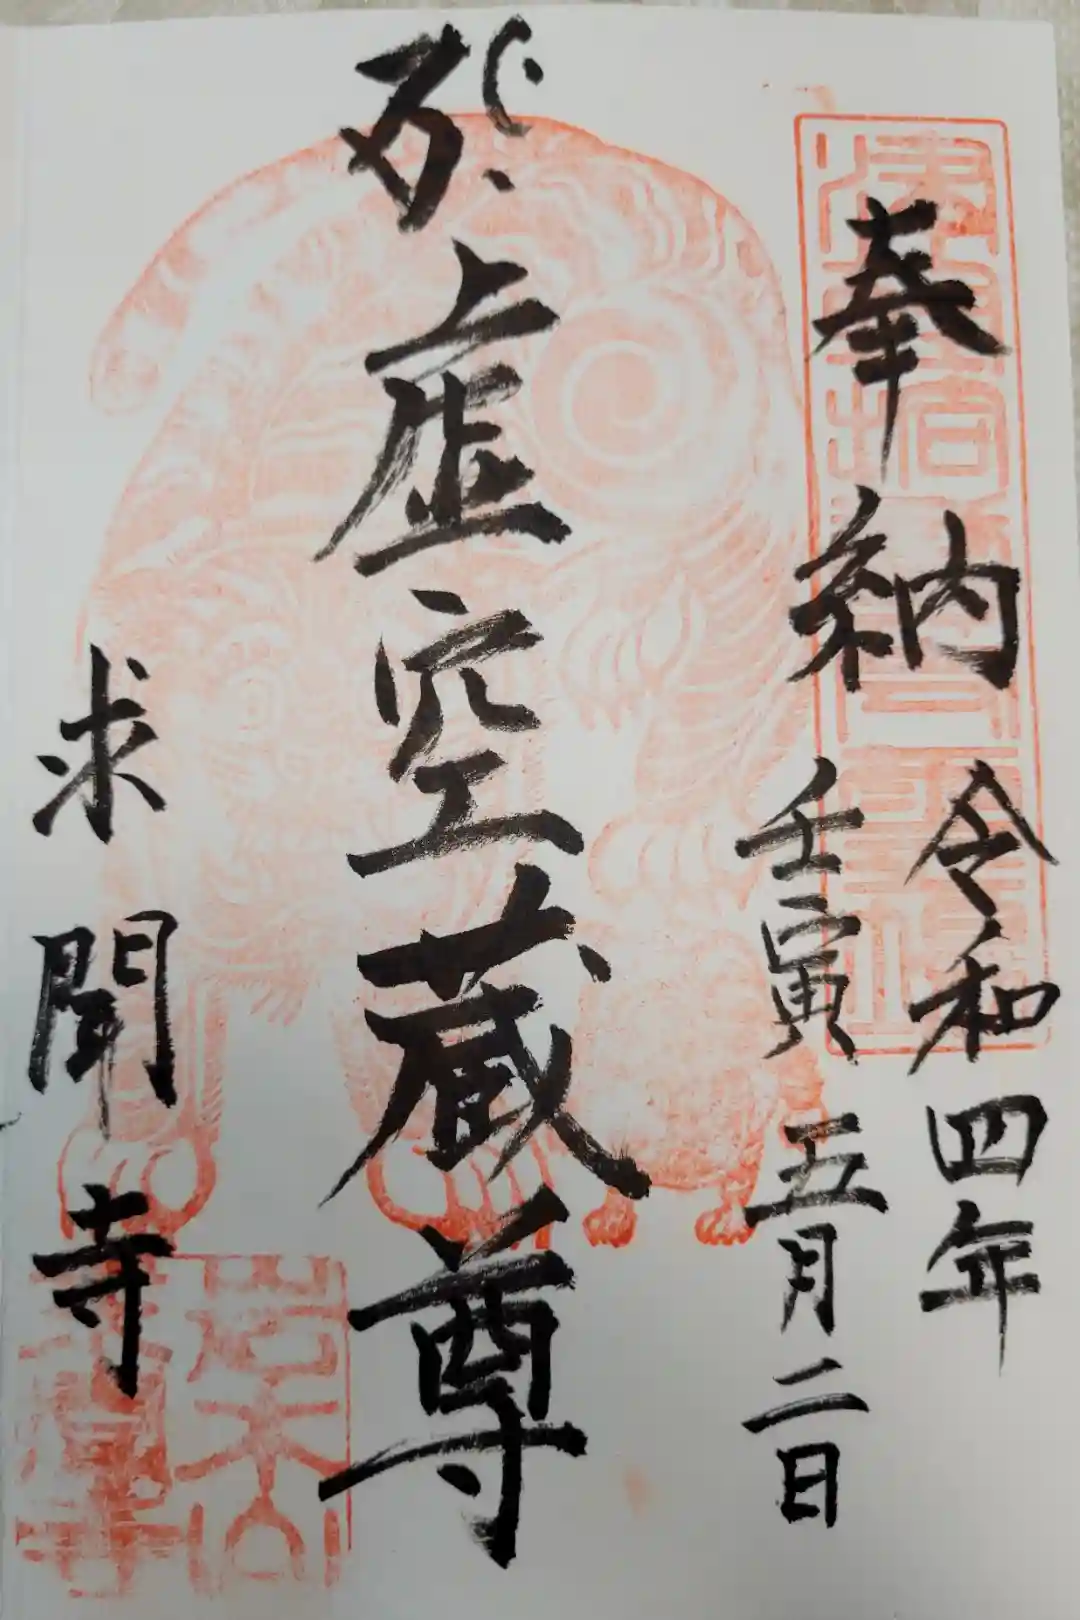 奉納
令和四年
壬寅 五月二日
虚空蔵尊
求聞寺
岩木山